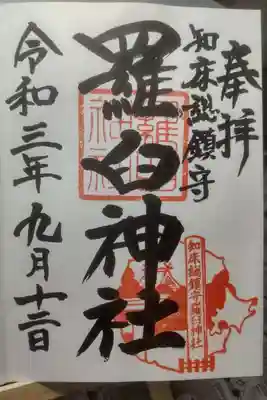 奉拝
知床総鎮守
羅臼神社
令和三年九月十二日
知床総鎮守羅臼神社